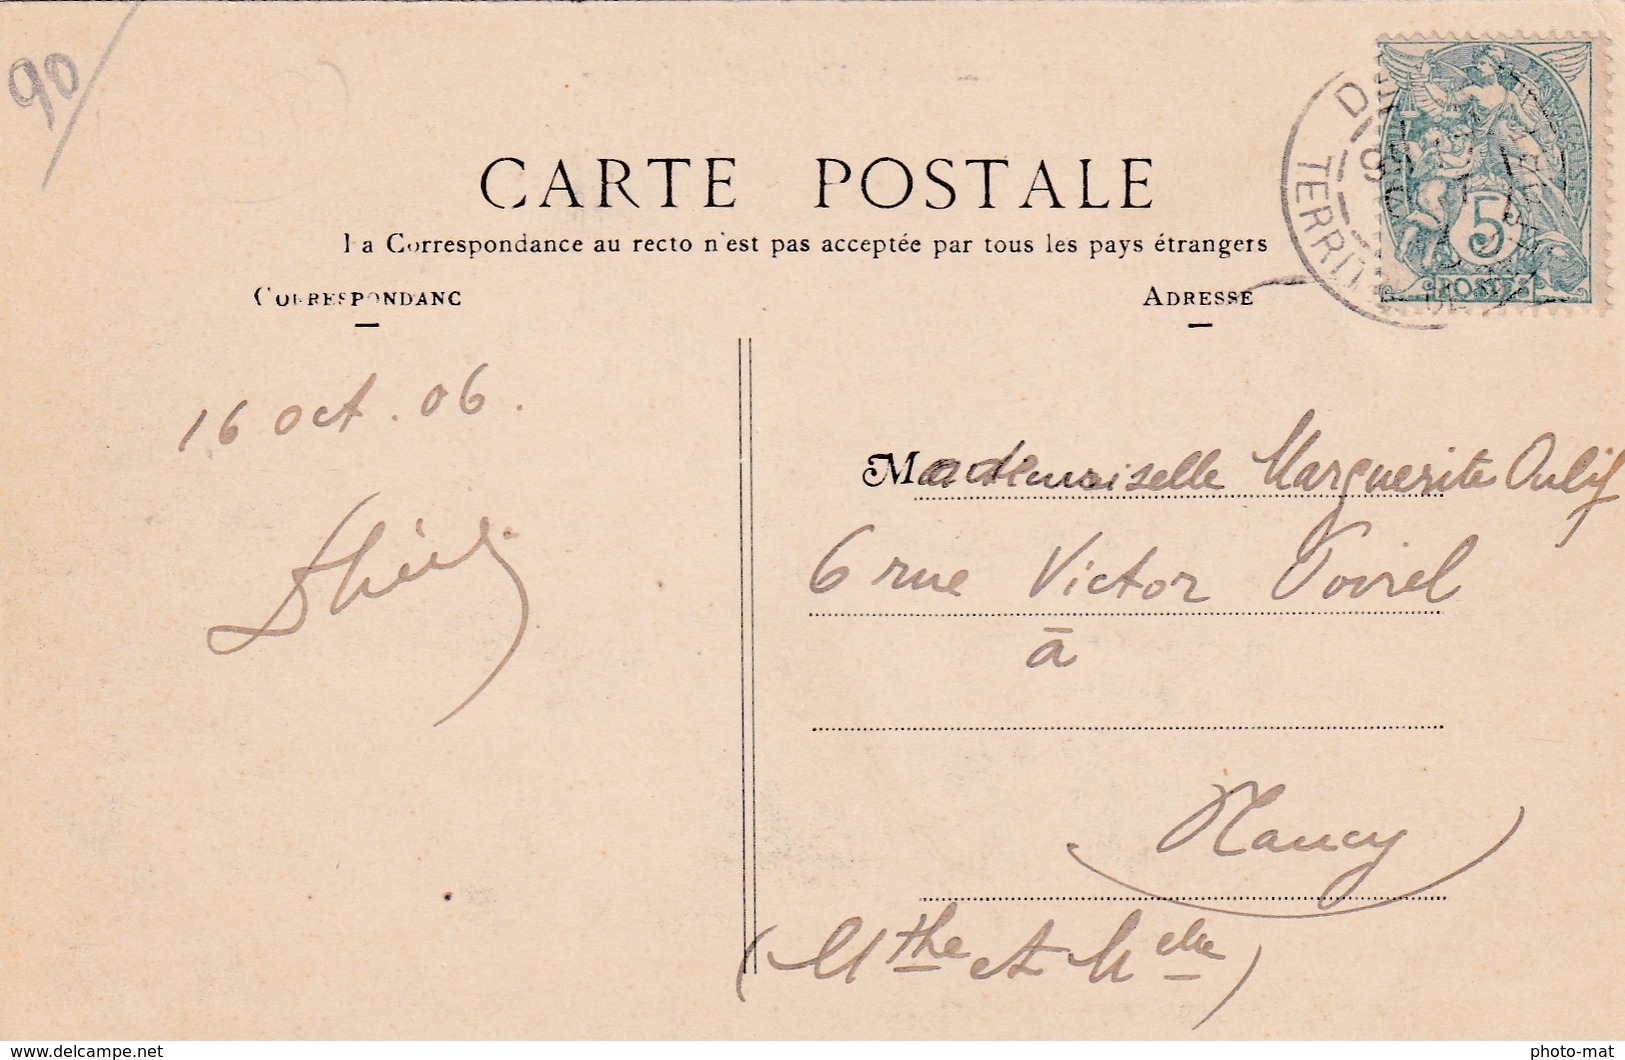 90
CARTE POSTALE
La Correspondance au recto n'est pas acceptée par tous les pays étrangers
CORRESPONDANC
ADRESSE
16 oct. 06.
Mademoiselle Marguerite
6 rue Victor Poirel
à
Nancy
(Mthe et Melle)
TERRIT DE
5
POSTES
www.delcampe.net
photo-mat